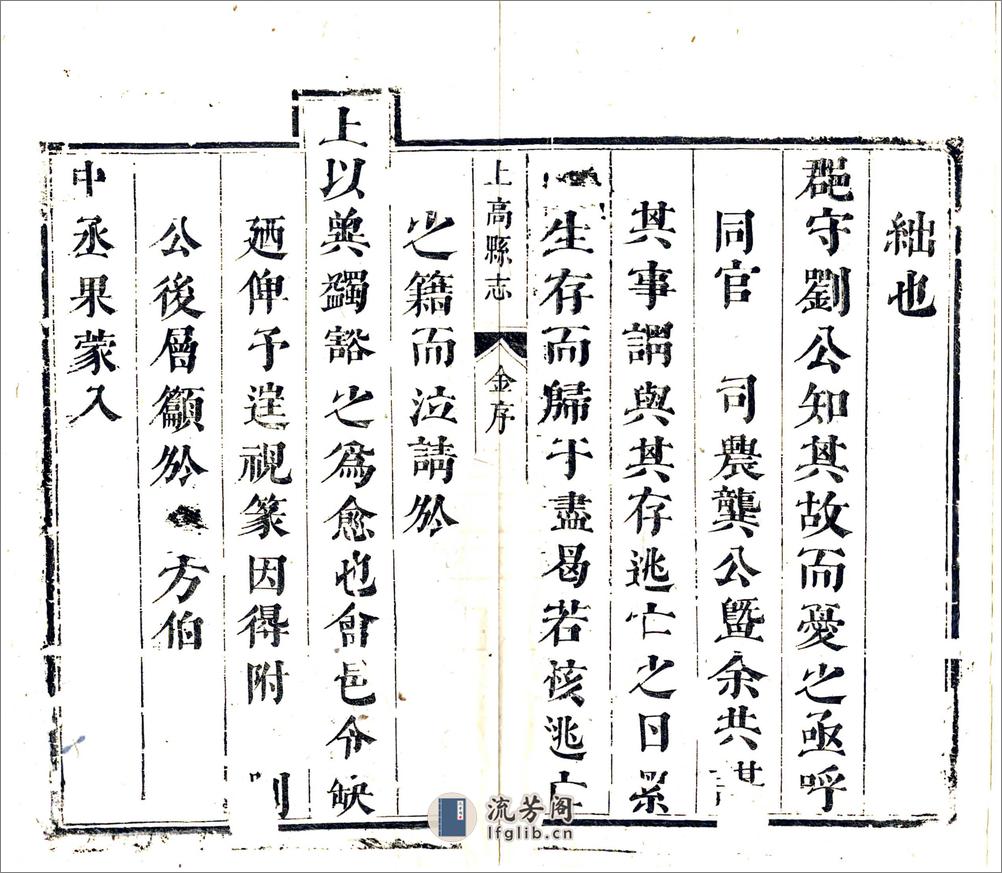 絀也
郡守劉公知其故而憂之亟呼
同官 司農龔公暨余共
其事謂與其存逃亡之日累
生存而歸于盡曷若核逃亡
上高縣志 金序
之籍而泣請於
上以冀蠲豁之爲愈也會邑令缺
廼俾予遙視篆因得附
公後層籲於 方伯
中丞果蒙入
流芳阁
lfglib.cn